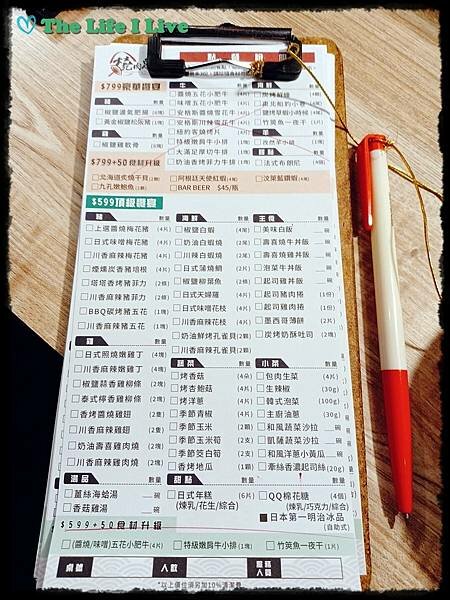 The Life I Live
點餐
$799豪華饗宴
牛 數量
海鮮 數量
豬 數量
醬燒五花小肥牛(4片)
味噌五花小肥牛(4片)
椒鹽濃氣肥腸
黃金椒鹽松阪豬
安格斯醬燒雪花牛
安格斯川燒雪花牛
紐約客燒烤片
特級嫩肩牛小排
大滿足厚切牛排
奶油香烤菲力牛排
竹筴魚一夜干(1片)
雞 數量
椒鹽雞軟骨
法式布朗尼
$799+50食材升級
北海道炙燒干貝
阿根廷天使紅蝦
汶萊藍鑽蝦
九孔嫩鮑魚
BAR BEER $45/瓶
$599頂級饗宴
豬 數量
上選醬燒梅花豬 (4片)
日式味噌梅花豬 (4片)
川香麻辣梅花豬 (4片)
煙燻炭香豬培根 (4片)
塔塔香烤豬菲力 (2條)
川香麻辣豬菲力 (2條)
BBQ碳烤豬五花 (1塊)
川香麻辣豬五花 (1塊)
海鮮 數量
椒鹽白蝦 (4尾)
奶油白蝦蝦 (4尾)
川辣白蝦蝦 (4尾)
日式蒲燒鯛 (2片)
椒鹽柳葉魚 (2條)
日式天婦羅 (4片)
日式味噌花枝 (4片)
川香麻辣花枝 (4片)
奶油鮮烤孔雀貝(2顆)
川香麻辣孔雀貝(2顆)
主食 數量
美味白飯 碗
壽喜燒牛丼飯 碗
壽喜燒雞丼飯 碗
泡菜牛丼飯 碗
起司雞丼飯 碗
起司豬肉捲 (1份)
起司雞肉捲 (1份)
墨西哥薄餅 (2片)
炭烤奶酥吐司 (2塊)
雞 數量
日式照燒嫩雞丁 (4塊)
川香麻辣嫩雞丁 (4塊)
椒鹽蒜香雞柳條 (2塊)
泰式檸香雞柳條 (2塊)
香烤醬燒雞翅 (2隻)
川香麻辣雞翅 (2隻)
奶油壽喜雞肉燒 (1塊)
川香麻辣雞肉燒 (1塊)
蔬菜 數量
烤香菇 (4朵)
烤杏鮑菇 (4片)
烤洋蔥 (4片)
季節青椒 (4片)
季節玉米 (2顆)
季節玉米筍 (2支)
季節筊白筍 (2支)
香烤地瓜 (1顆)
小菜 數量
包肉生菜 (4片)
生辣椒 (30g)
韓式泡菜 (100g)
主廚油蔥 (30g)
和風蔬菜沙拉 碗
凱薩蔬菜沙拉 碗
和風洋蔥小黃瓜 碗
牽絲香濃起司絲(20g)
湯品 數量
薑絲海蛤湯 碗
香菇雞湯 碗
甜點 數量
日式年糕 (6片)
(煉乳/花生/綜合)
QQ棉花糖 (4個)
(煉乳/巧克力/綜合)
日本第一明治冰品
(自助式)
$599+50食材升級
(醬燒/味噌)五花小肥牛(4片)
特級嫩肩牛小排(1塊)
竹筴魚一夜干(1片)
桌號
人數
服務人員
*以上價位須另加10%清潔費